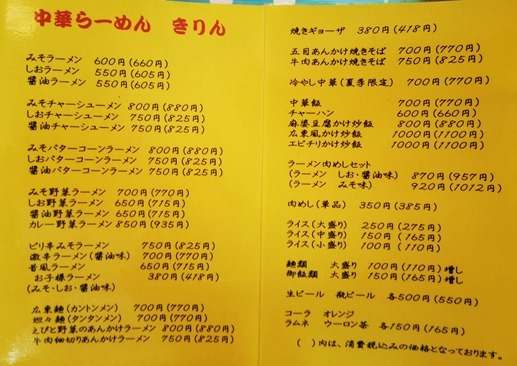 中華らーめん きりん
みそラーメン 600円(660円)
しおラーメン 550円(605円)
醤油ラーメン 550円(605円)
みそチャーシューメン 800円(880円)
しおチャーシューメン 750円(825円)
醤油チャーシューメン 750円(825円)
みそバターコーンラーメン 800円(880円)
しおバターコーンラーメン 750円(825円)
醤油バターコーンラーメン 750円(825円)
みそ野菜ラーメン 700円(770円)
しお野菜ラーメン 650円(715円)
醤油野菜ラーメン 650円(715円)
カレー野菜ラーメン 850円(935円)
ピリ辛みそラーメン 750円(825円)
激辛ラーメン(醤油味) 700円(770円)
昔風ラーメン 650円(715円)
お子様ラーメン 380円(418円)
(みそ・しお・醤油)
広東麺(カントンメン) 700円(770円)
坦々麺(タンタンメン) 700円(770円)
えびと野菜のあんかけラーメン 800円(880円)
牛肉細切りあんかけラーメン 750円(825円)
焼きギョーザ 380円(418円)
五目あんかけ焼きそば 700円(770円)
牛肉あんかけ焼きそば 750円(825円)
冷やし中華(夏季限定) 700円(770円)
中華飯 700円(770円)
チャーハン 600円(660円)
麻婆豆腐かけ炒飯 800円(880円)
広東風かけ炒飯 1000円(1100円)
エビチリかけ炒飯 1000円(1100円)
ラーメン肉めしセット
(ラーメン しお・醤油味) 870円(957円)
(ラーメン みそ味) 920円(1012円)
肉めし(単品) 350円(385円)
ライス(大盛り) 250円(275円)
ライス(中盛り) 150円(165円)
ライス(小盛り) 100円(110円)
麺類 大盛り 100円(110円)増し
御飯類 大盛り 150円(165円)増し
生ビール 瓶ビール 各500円(550円)
コーラ オレンジ
ラムネ ウーロン茶 各150円(165円)
( )内は、消費税込みの価格となっております。